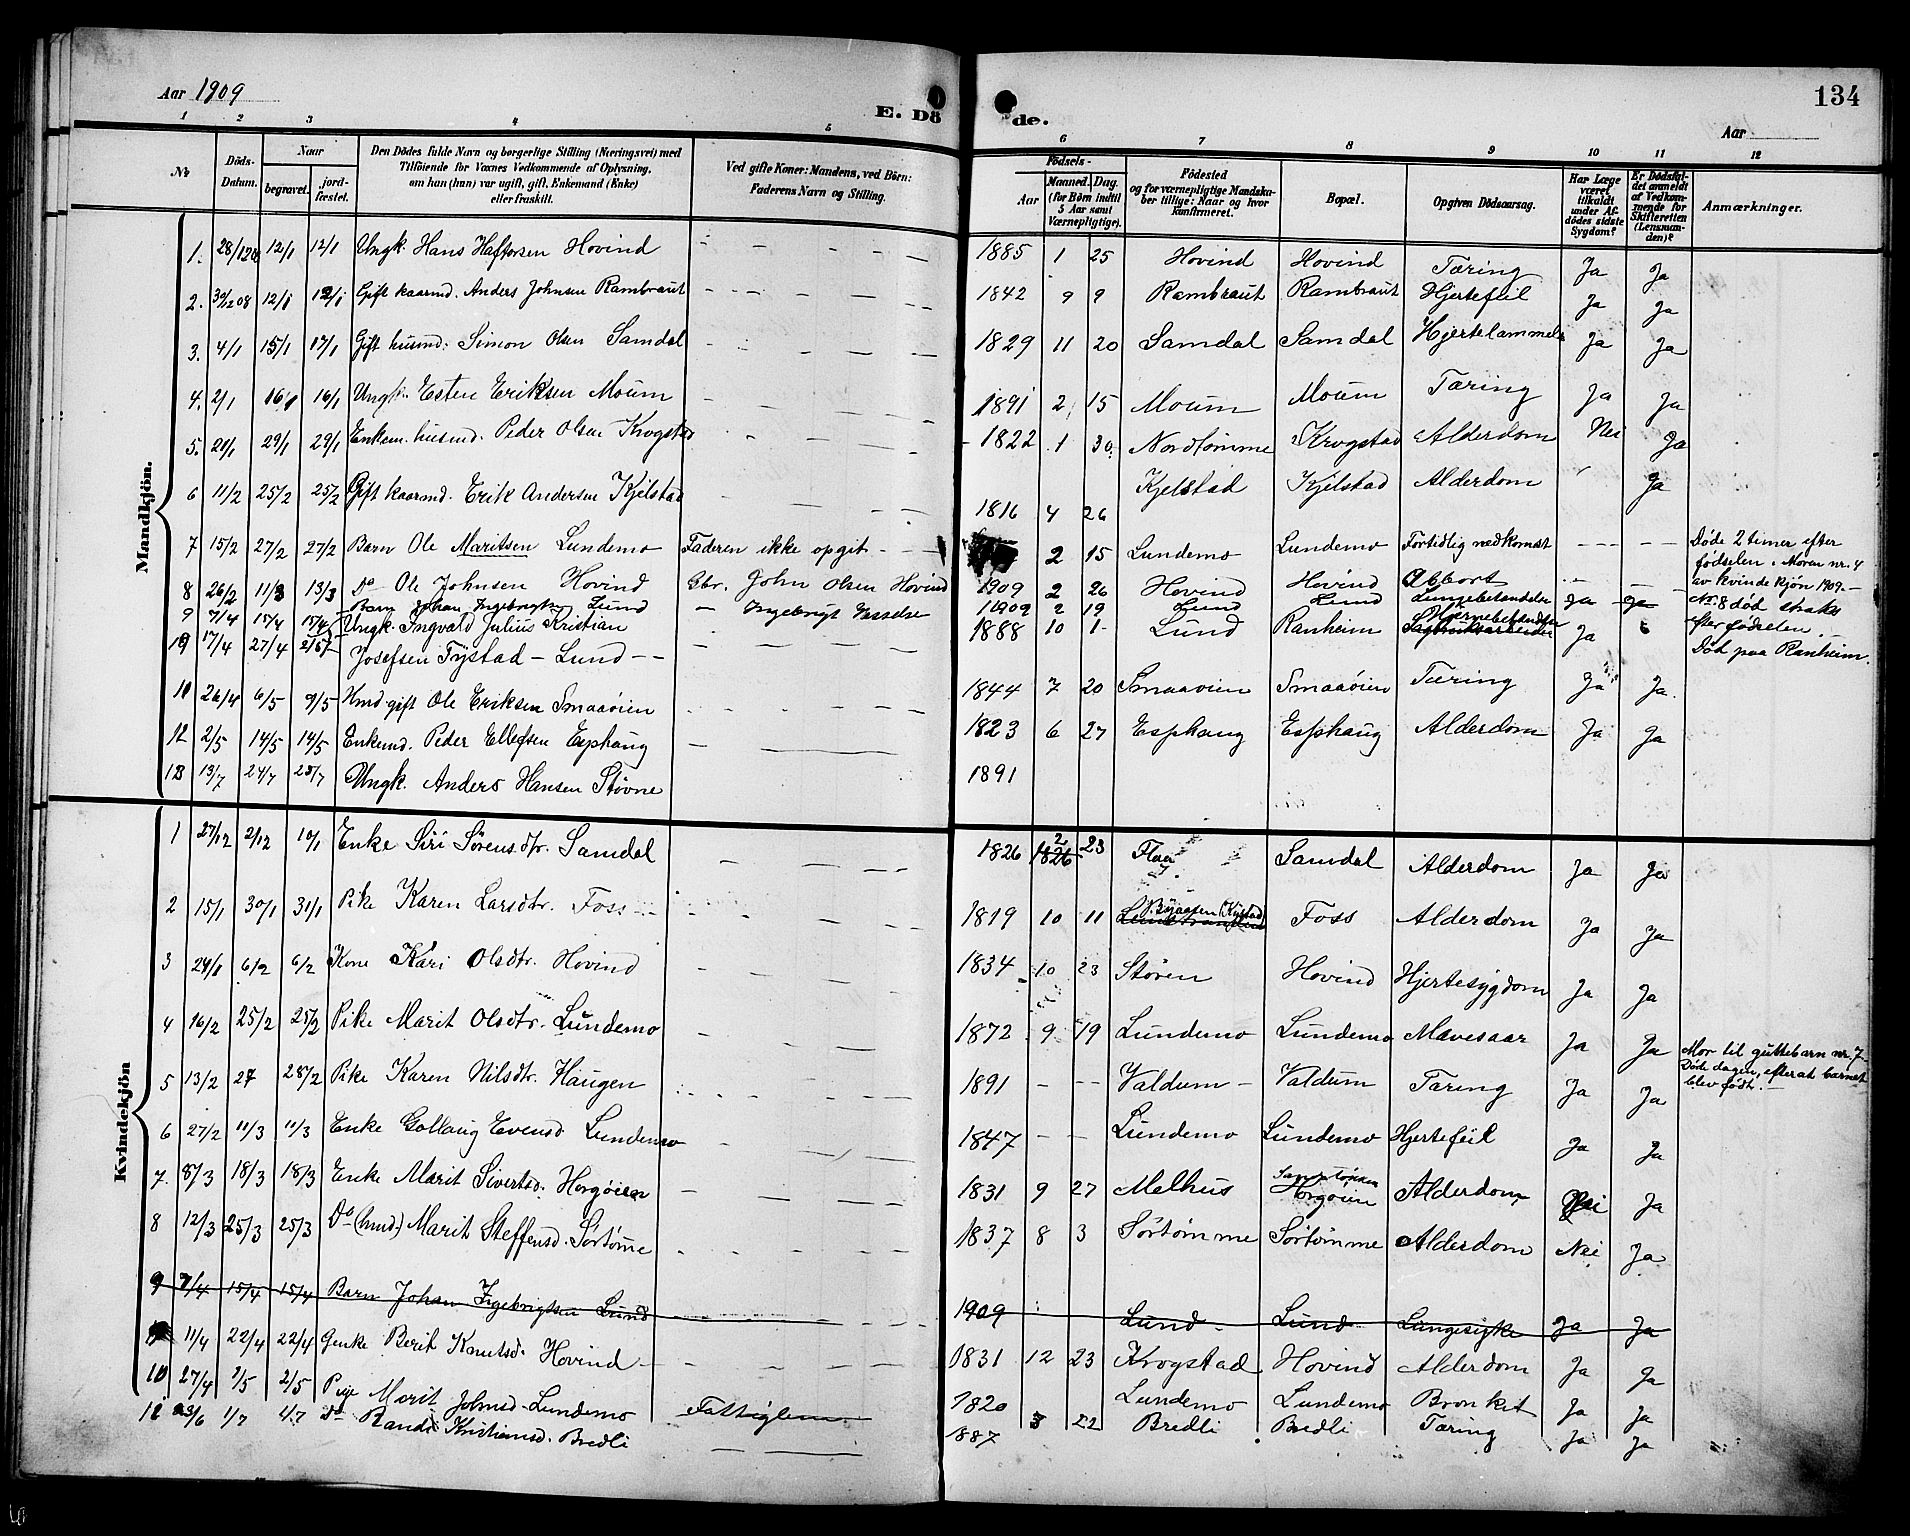 Aar 1909
E. Dö
de.
134
Aar
1 2 3 4 5 6 7 8 9 10 11 12
No
Döds-Datum.
Naar
begravet.
jord-fæstet.
Den Dödes fulde Navn og borgerlige Stilling (Næringsvei) med
Tilföiende for Voxnes Vedkommende af Oplysning,
om han (hun) var ugift, gift, Enkemand (Enke)
eller fraskilt.
Ved gifte Koner: Mandens, ved Börn:
Faderens Navn og Stilling.
Födsels-
Aar
Maaned. Dag.
(for Børn indtil
5 Aar samt
Værnepligtige).
Födested
og for værnepligtige Mandska-
ber tillige: Naar og hvor
konfirmeret.
Bopæl.
Opgiven Dödsaarsag.
Har Læge
været
tilkaldt
under Af-
dödes sidste
Sygdom?
Er Dödsfal-
det anmeldt
af Vedkom-
mende for
Skifteretten
(Lensman-
den)?
Anmærkninger.
Mandkjön.
1. 28/12 08 12/1 12/1 Ungk. Hans Haftorsen Hovind 1885 1 25 Hovind Hovind Tæring Ja Ja
2. 30/12 08 12/1 12/1 Gift kaarmd. Anders Johnsen Rambraut 1842 9 9 Rambraut Rambraut Hjertefeil Ja Ja
3. 4/1 15/1 17/1 Gift husmd. Simon Olsen Samdal 1829 11 20 Samdal Samdal Hjertelammelse Ja Ja
4. 2/1 16/1 16/1 Ungk. Esten Eriksen Moum 1891 2 15 Moum Moum Tæring Ja Ja
5. 20/1 29/1 29/1 Enkem. husmd. Peder Olsen Krogstad 1822 1 30 Nordtømme Krogstad Alderdom Nei Ja
6 11/2 25/2 25/2 Gift kaarmd. Erik Andersen Kjelstad 1816 4 26 Kjelstad Kjelstad Alderdom Ja
7 15/2 27/2 27/2 Barn Ole Maritsen Lundemo Faderen ikke opgit. 2 15 Lundemo Lundemo Fortidlig nedkomst Døde 2 timer efter
fødselen. Moren nr. 4
av kvindekjøn 1909.
8 26/2 11/3 13/3 Do Ole Johnsen Hovind Gbr. John Olsen Hovind 1909 2 26 Hovind Hovind Abbort Nr. 8 død straks
efter fødselen.
9 7/4 15/4 15/4 Barn Johan Ingebrigtsen Lund Ingebrigt 1909 2 19 Lund Lund Lungebetændelse Ja Ja
10 17/4 27/4 Ungk. Ingvald Julius Kristian
Josefsen Tystad - Lund 1888 10 1 Lund Ranheim Hjernebetændelse Ja Død paa Ranheim.
11 26/4 6/5 9/5 Hmd. gift Ole Eriksen Smaaøien 1844 7 20 Smaaøien Smaaøien Tæring Ja Ja.
12 2/5 14/5 14/5 Enkemd. Peder Ellefsen Esphaug 1823 6 27 Esphaug Esphaug Alderdom Ja Ja
13 13/7 24/7 25/7 Ungk. Anders Hansen Støvne 1891
Kvindekjön
1 27/12 2/12 10/1 Enke Siri Sørensdtr. Samdal 1826 2 1826 23 Flaa Samdal Alderdom Ja Ja
2 15/1 30/1 31/1 Pike Karen Larsdtr. Foss 1819 10 11 Byaasen (Kystad) Foss Alderdom Ja Ja
3 24/1 6/2 6/2 Kone Kari Olsdtr. Hovind 1834 10 23 Støren Hovind Hjertesygdom Ja Ja
4 16/2 25/2 25/2 Pike Marit Olsdtr. Lundemo 1872 9 19 Lundemo Lundemo Mavesaar Ja Ja Mor til guttebarn nr. 7
Døde dagen, efterat barnet
blev født.
5 13/2 27 28/2 Pike Karen Nilsdtr. Haugen 1891 Valdum Valdum Tæring Ja Ja
6 27/2 11/3 11/3 Enke Gollaug Evensd Lundemo 1847 Lundemo Lundemo Hjertefeil Ja Ja
7. 8/3 18/3 18/3 Enke Marit Sivertsd. Horgøien 1831 9 27 Melhus Horgøien Alderdom Nei Ja
8 12/3 25/3 25/3 Do (hmd.) Marit Steffensd. Sørtømme 1837 8 3 Sørtømme Sørtømme Alderdom Nei Ja
9 7/4 15/4 15/4 Barn Johan Ingebrigtsen Lund 1909 Lund Lund Lungesyke Ja Ja
11/4 22/4 22/4 Genke Berit Knutsd. Hovind 1831 12 23 Krogstad Hovind Alderdom Ja Ja
10 27/4 2/5 Pige Marit Johnsd. Lundemo Fattiglem 1820 Lundemo Lundemo Bronkit Ja Ja
11 23/6 1/7 4.7 Do Randi Kristiansd. Bredli 1887 3 22 Bredli Bredli Tæring Ja Ja